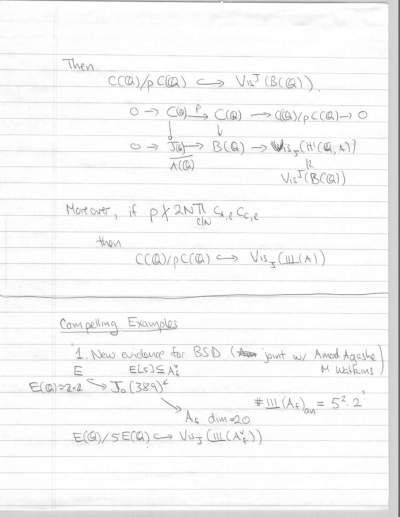 Then
C(Q)/pC(Q) ↪ Vis^J(B(Q)).
0 → C(Q) →^p C(Q) → C(Q)/pC(Q) → 0
0 → J(Q)/A(Q) → B(Q) → Vis_J(H¹(Q, A))
Vis^J(B(Q))
Moreover, if p ∤ 2N∏_{ℓ|N} c_{A,ℓ} c_{C,ℓ}
then
C(Q)/pC(Q) ↪ Vis_J(Ш(A))
Compelling Examples
1. New evidence for BSD (joint w/ Amod Agashe
E E[5] ⊆ A_f^∨ M Watkins)
E(Q) ≅ Z² → J_0(389)
A_f dim=20 #Ш(A_f)_an = 5²·2^?
E(Q)/5E(Q) ↪ Vis_J(Ш(A_f^∨))